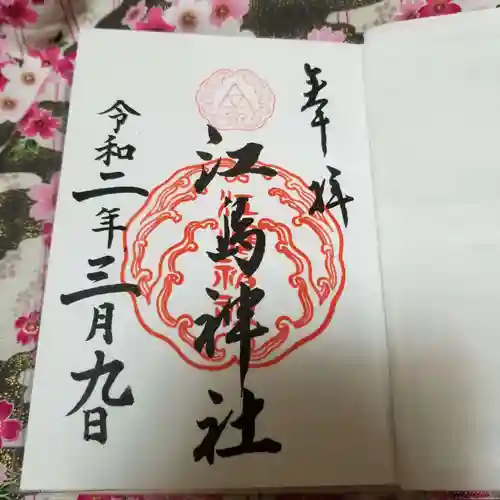 奉拝
江島神社
令和二年三月九日